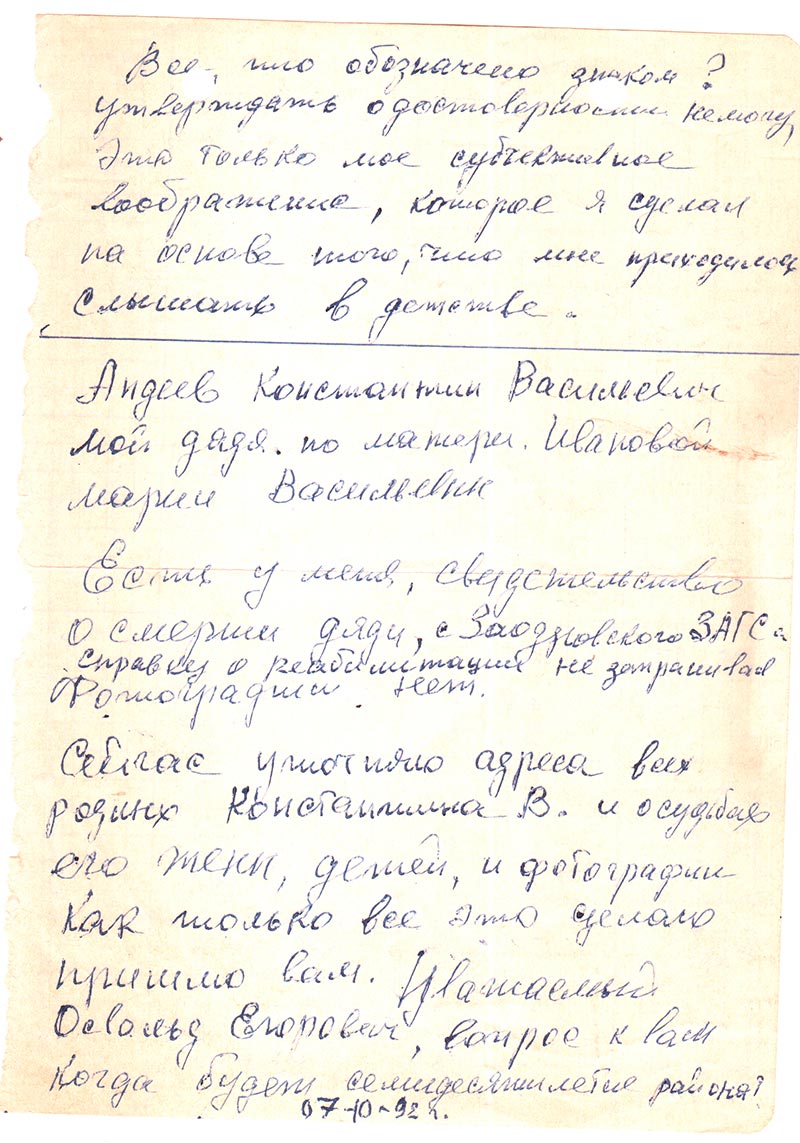 Все, что обозначено знаком?
утверждать о достоверности немогу,
это только мое субъективное
воображение, которое я сделал
на основе того, что мне приходилось
слышать в детстве.
Андеев Константин Васильевич
мой дядя. по матери. Ивановой
марии Васильевны
Есть у меня, свидетельство
о смерти дяди, с Заозерновского ЗАГСа
справку о реабилитации не запрашивал
Фотографии нет.
Сейчас уточняю адреса всех
родных Константина В. и осудьбах
его жены, детей, и фотографии
Как только все это сделаю
пришлю вам. Уважаемый
Освальд Егорович, вопрос к вам
когда будет семидесятилетие района?
07-10-92 г.